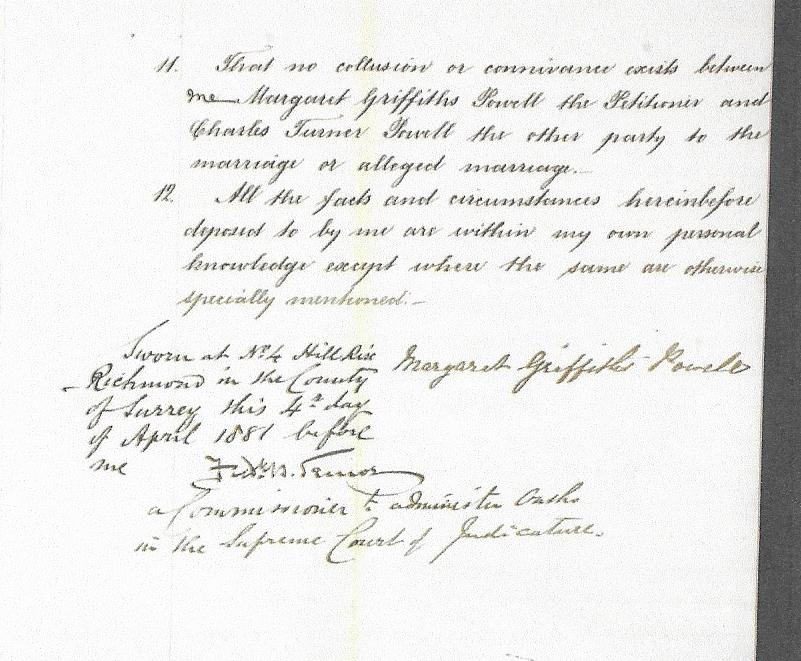 11. That no collusion or connivance exists between
me Margaret Griffiths Powell the Petitioner and
Charles Turner Powell the other party to the
marriage or alleged marriage.
12. All the facts and circumstances hereinbefore
deposed to by me are within my own personal
knowledge except where the same are otherwise
specially mentioned.
Sworn at No. 4 Hill Rise
Richmond in the County
of Surrey this 4th day
of April 1881 before
me
Margaret Griffiths Powell
a Commissioner to administer Oaths
in the Supreme Court of Judicature.